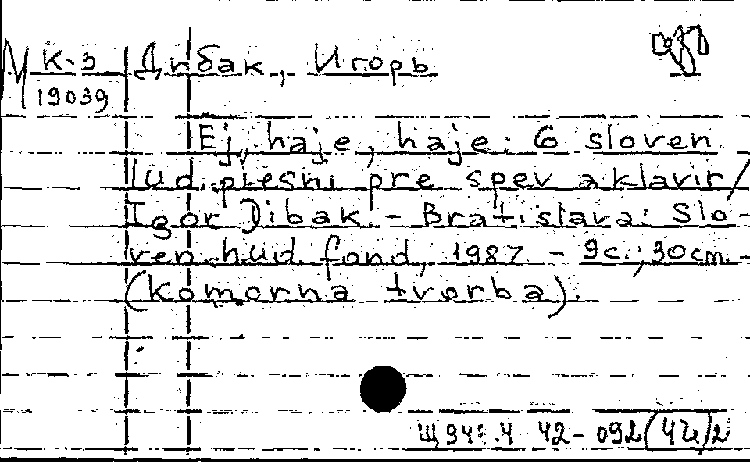 М К-3 Дибак, Игорь
19039
Ej, haje, haje: 6 sloven
lud. piesni pre spev a klavir/
Igor Dibak. - Bratislava: Slo-
ven. hud. fond, 1987. - 9с.; 30cm. -
(Komorna tvorba).
Щ94 42-092(4Ч)2